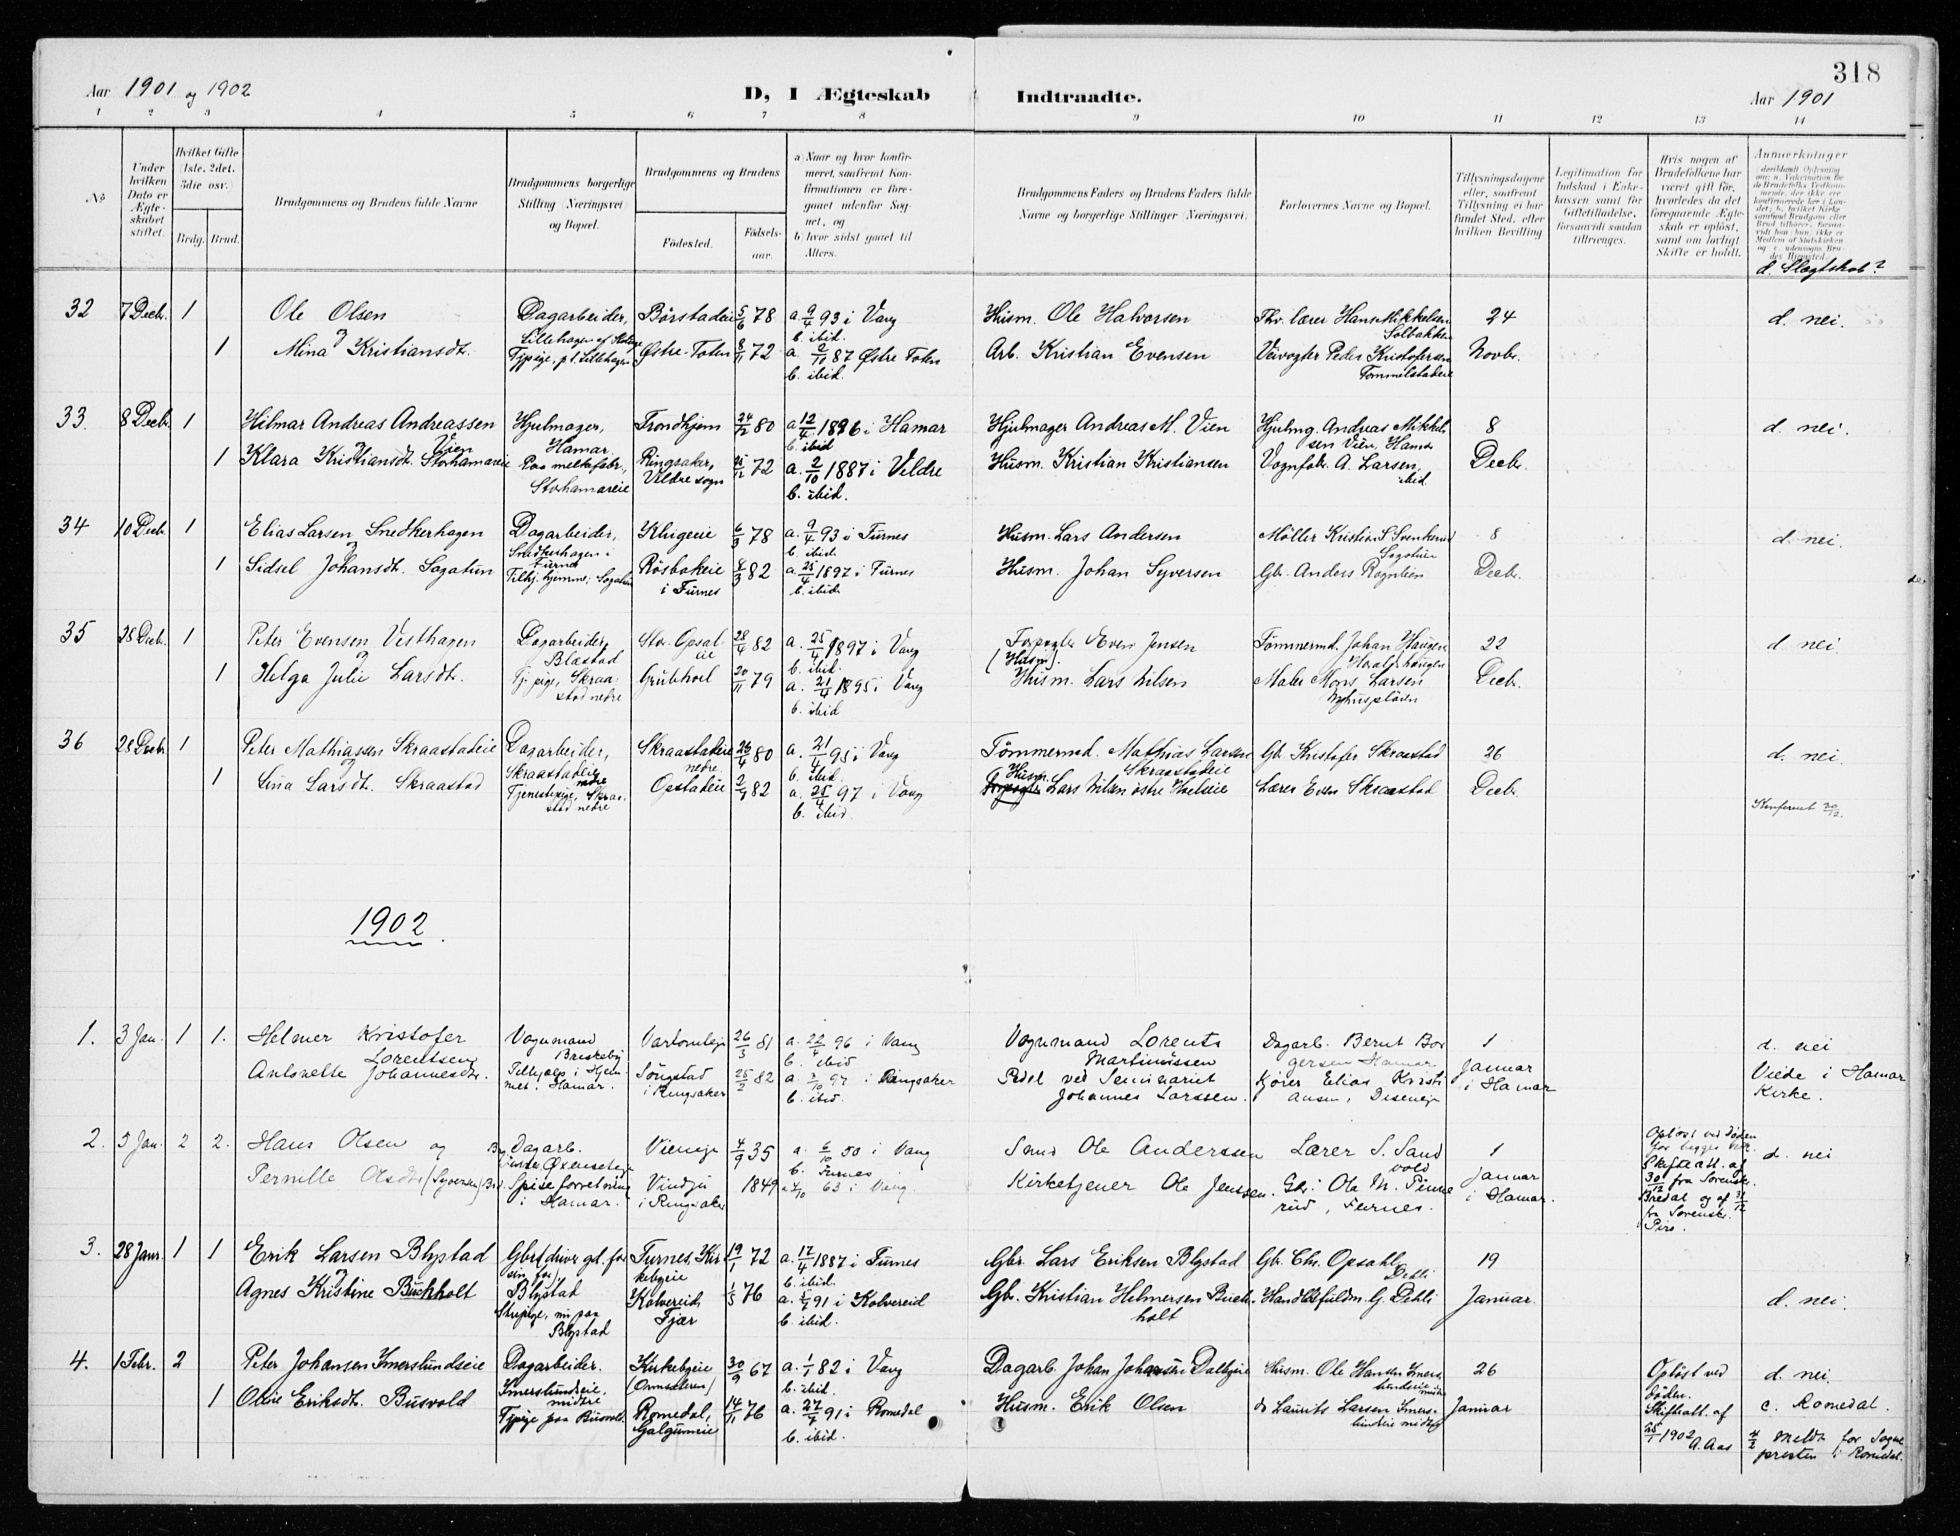 318
Aar 1901 og 1902
D, I Ægteskab Indtraadte.
Aar 1901
1 2 3 4 5 6 7 8 9 10 11 12 13 14
No
Under hvilken Dato er Ægteskabet stiftet.
Hvilket Gifte (1ste, 2det, 3die osv.)
Brdg. Brud.
Brudgommens og Brudens fulde Navne
Brudgommens borgerlige Stilling (Næringsvei) og Bopæl.
Brudgommens og Brudens
Födested.
Födselsaar.
a) Naar og hvor konfirmeret, saafremt Konfirmationen er foregaaet udenfor Sognet, og
b) hvor sidst gaaet til Alters.
Brudgommens Faders og Brudens Faders fulde Navne og borgerlige Stillinger (Næringsvei)
Forlovernes Navne og Bopæl.
Tillysningsdagene eller, saafremt Tillysning ei har fundet Sted, efter hvilken Bevilling
Legitimation for Indskud i Enkekassen samt for Giftetilladelse, forsaavidt saadan tiltrænges.
Hvis nogen af Brudefolkene har været gift för, hvorledes da det foregaaende Ægteskab er oplöst, samt om lovligt Skifte er holdt.
Anmerkninger
d. Slægtskab?
32 7 Decbr. 1 Ole Olsen Dagarbeider, Börstadeie 5/6 78 a. 9/4 93 i Vang b. ibid. Husm. Ole Halvorsen Fhv. lærer Hans Mikkelsen Solbakken 24 d. nei.
1 Mina Kristiansdt. Tjpige, p.t. Lillehagen Østre Toten 8/11 72 a. 2/11 87 Østre Toten b. ibid. Arb. Kristian Evensen Veivogter Peder Kristofersen Tommelstadeie Novbr.
33. 8 Decbr. 1 Hilmar Andreas Andreassen Vien Hjulmager, Hamar Trondhjem 24/12 80 a. 12/4 1896 i Hamar b. ibid Hjulmager Andreas M. Vien Hjulmg. Andreas Mikkelsen Vien, Hamar 8 d. nei.
1 Klara Kristiansdt. Storhamareie Paa melkefabr., Storhamareie Ringsaker, Veldre sogn 72 a. 2/10 1887 i Veldre b. ibid. Husm. Kristian Kristiansen Vognfabr. A. Larsen, ibid Decbr.
34 10 Decbr. 1 Elias Larsen Snedkerhagen Dagarbeider, Snedkerhagen i Furnes 6/3 78 a. 9/4 93 i Furnes b. ibid Husm. Lars Andersen Möller Kristian S. Svenkerud Sogatun 8 d. nei.
1 Sidsel Johansdt. Sogatun Tilhj. hjemme, Sogatun Rösbakeie i Furnes 8/3 82 a. 25/4 1897 i Furnes b. ibid Husm. Johan Syversen Gbr. Anders Rognlien Decbr.
35 28 Decbr. 1 Peter Evensen Vesthagen Dagarbeider, Blæstad Sto. Opsaleie 28/4 82 a. 25/4 1897 i Vang b. ibid Forpagter Even Jensen (Husm). Tömmermd. Johan Haugen 22 d. nei.
1 Helga Julie Larsdt. Tj.pige, Skraastad nedre Grubhol 20/11 79 a. 21/4 1895 i Vang b. ibid Husm. Lars Nilsen Maler Mons Larsen Decbr.
36 28 Decbr. 1 Peter Mathiassen Skraastadeie Dagarbeider, Skraastadeie nedre Skraastadeie nedre 26/4 80 a. 21/4 95 i Vang b. ibid. Tömmermd. Mathias Larsen Skraastadeie Gb. Kristofer Skraastad 26 d. nei.
1 Lina Larsdt. Skraastad Tjenestepige, Skraastad nedre Opstadeie 2/7 82 a. 25/4 97 i Vang b. ibid. Husm. Lars Nilsen östre Hoelseie Lærer Even Skraastad Decbr.
Konfereret 30/12.
1902
1. 3 Jan. 1 1. Helmer Kristofer Lorentsen Vognmand Briskeby 26/3 81 a. 22/4 96 i Vang b. ibid Vognmand Lorents Martinissen Dagarb. Bernt Borgersen Hamar 1 d. nei
Antonette Johannesdtr. Tilhjælp i Hjemmet. Hamar. Söngstad i Ringsaker 25/2 82 a. 3/10 97 i Ringsaker b. ibid. Pedel ved Seminariet Johannes Larssen. Kjører Elias Kristiansen, Diseneje Januar i Hamar Viede i Hamar Kirke.
2. 5 Jan. 2 2. Hans Olsen og Dagarb. Vieneje 4/9 35 a. 6/10 50 i Vang b. Furnes Smed Ole Anderssen Lærer S. Sandvold 1 Opløst ved Døden for begges Vedk. d. nei
Pernille Olsdtr (Syversen) Spiseforretning i Hamar. i Ringsaker 1849 63 i Vang Kirketjener Ole Jenssen. Gbr. Ole M. Finnerud, Furnes. Januar i Hamar. Skifteatt. af 30/12 fra Sorenskr. Bredal og af 31/12 fra Sorenskr. Piro.
3. 28 Janr. 1 1 Erik Larsen Blystad Gbrs. (driver gd. for sin far), Blystad Furnes, Kirkebyeie 19/1 72 a. 17/4 1887 i Furnes b. ibid. Gbr. Lars Eriksen Blystad Gb. Chr. Opsahl, Dehli 19
Agnes Kristine Buchholt Blystad Kolvereid, Fjær 1/5 76 a. 5/7 91 i Kolvereid b. ibid. Gb. Kristian Helmersen Buchholt Handelsfuldm. G. Dehli Januar. d. nei.
4. 1 Febr. 2 Peter Johansen Imerslundseie Dagarbeider. Imerslundeie, midtre Kirkebyeie 30/9 67 a. 1/1 82 i Vang b. ibid. Dagarb. Johan Johansen Dalbyeie Husm. Ole Hansen Imerslundeie midtre 26 Opløst ved døden. d. nei.
1 Oline Eriksdt. Busvold Tjpige paa Busvold. Romedal, Galguneie 14/11 76 a. 27/4 91 i Romedal b. ibid. Husm. Erik Olsen do Laurits Larsen Imerslundeie midtre Januar Skifteatt. af 25/1 1902 A. Aas c. Romedal.
4/2 Meldt for Sognepresten i Romedal.